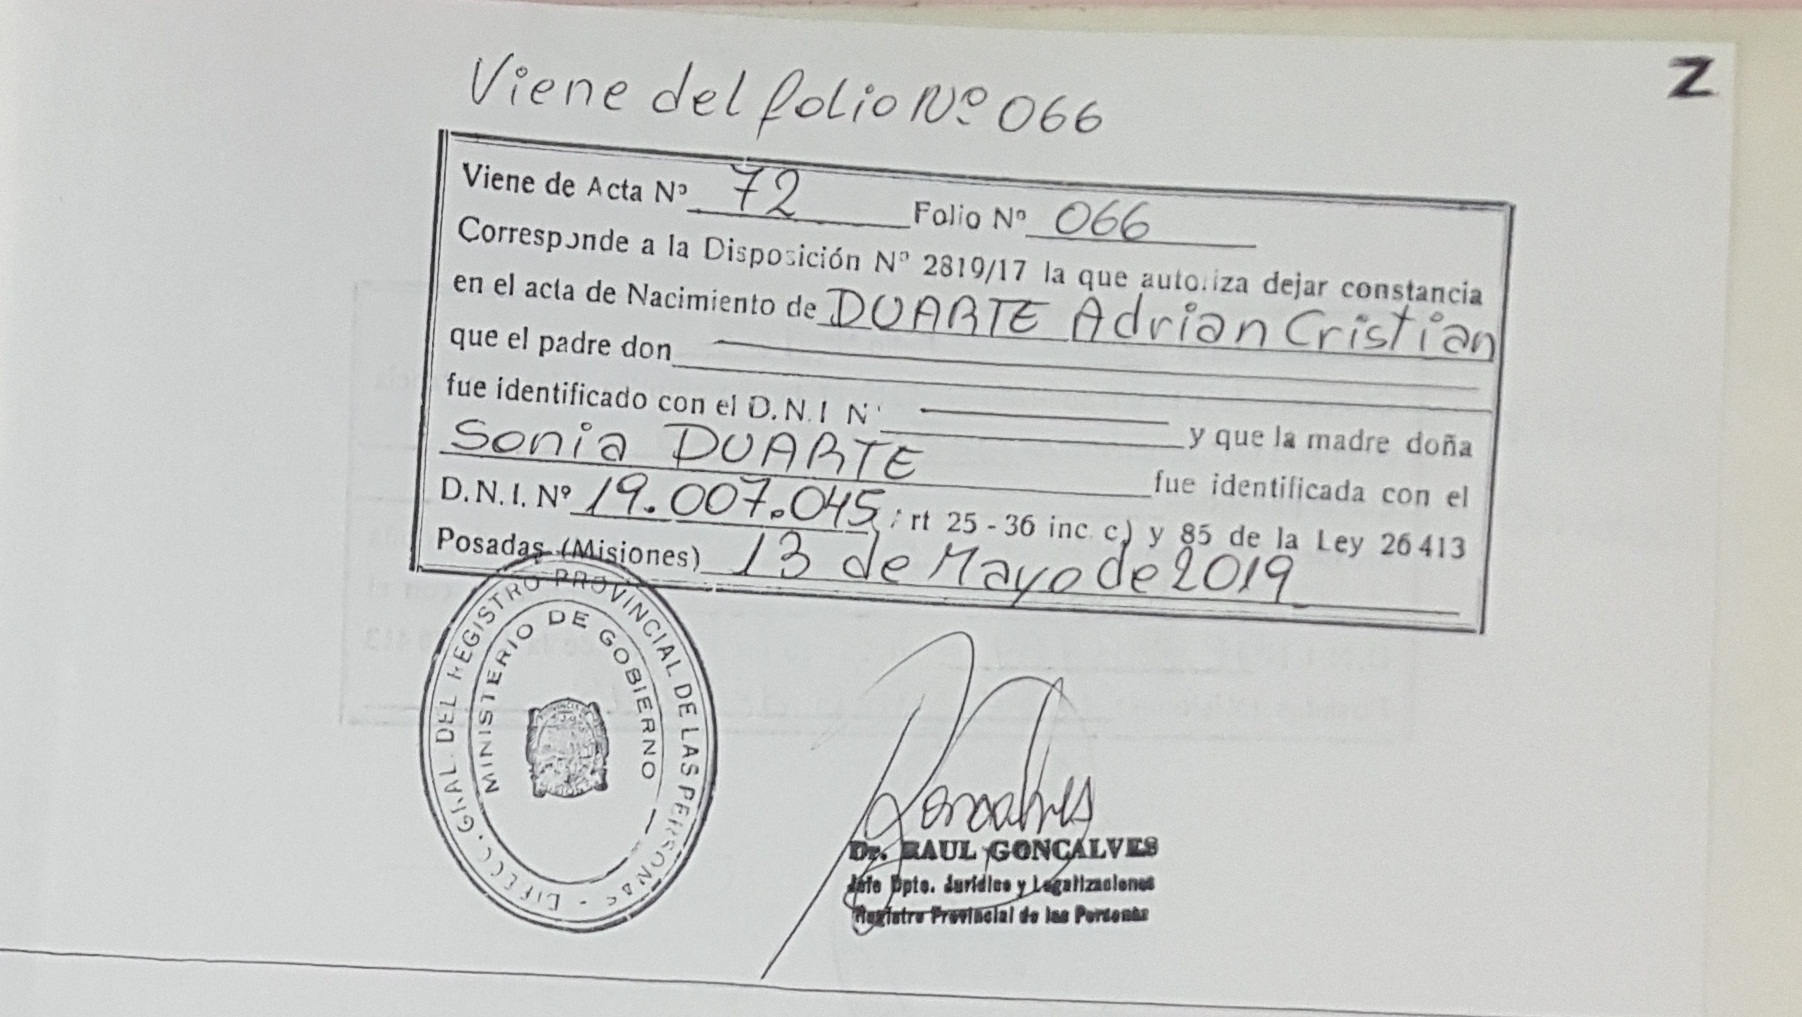 Viene del folio Nº 066
Z
Viene de Acta Nº 72 Folio Nº 066
Corresponde a la Disposición Nº 2819/17 la que autoriza dejar constancia
en el acta de Nacimiento de DUARTE Adrian Cristian
que el padre don
fue identificado con el D.N.I N° y que la madre doña
Sonia DUARTE fue identificada con el
D.N.I. Nº 19.007.045 rt 25 - 36 inc c) y 85 de la Ley 26413
Posadas (Misiones) 13 de Mayo de 2019
DIRECC. GRAL. DEL REGISTRO PROVINCIAL DE LAS PERSONAS
MINISTERIO DE GOBIERNO
Goncalves
Dr. RAUL GONCALVES
Jefe Dpto. Jurídico y Legalizaciones
Registro Provincial de las Personas